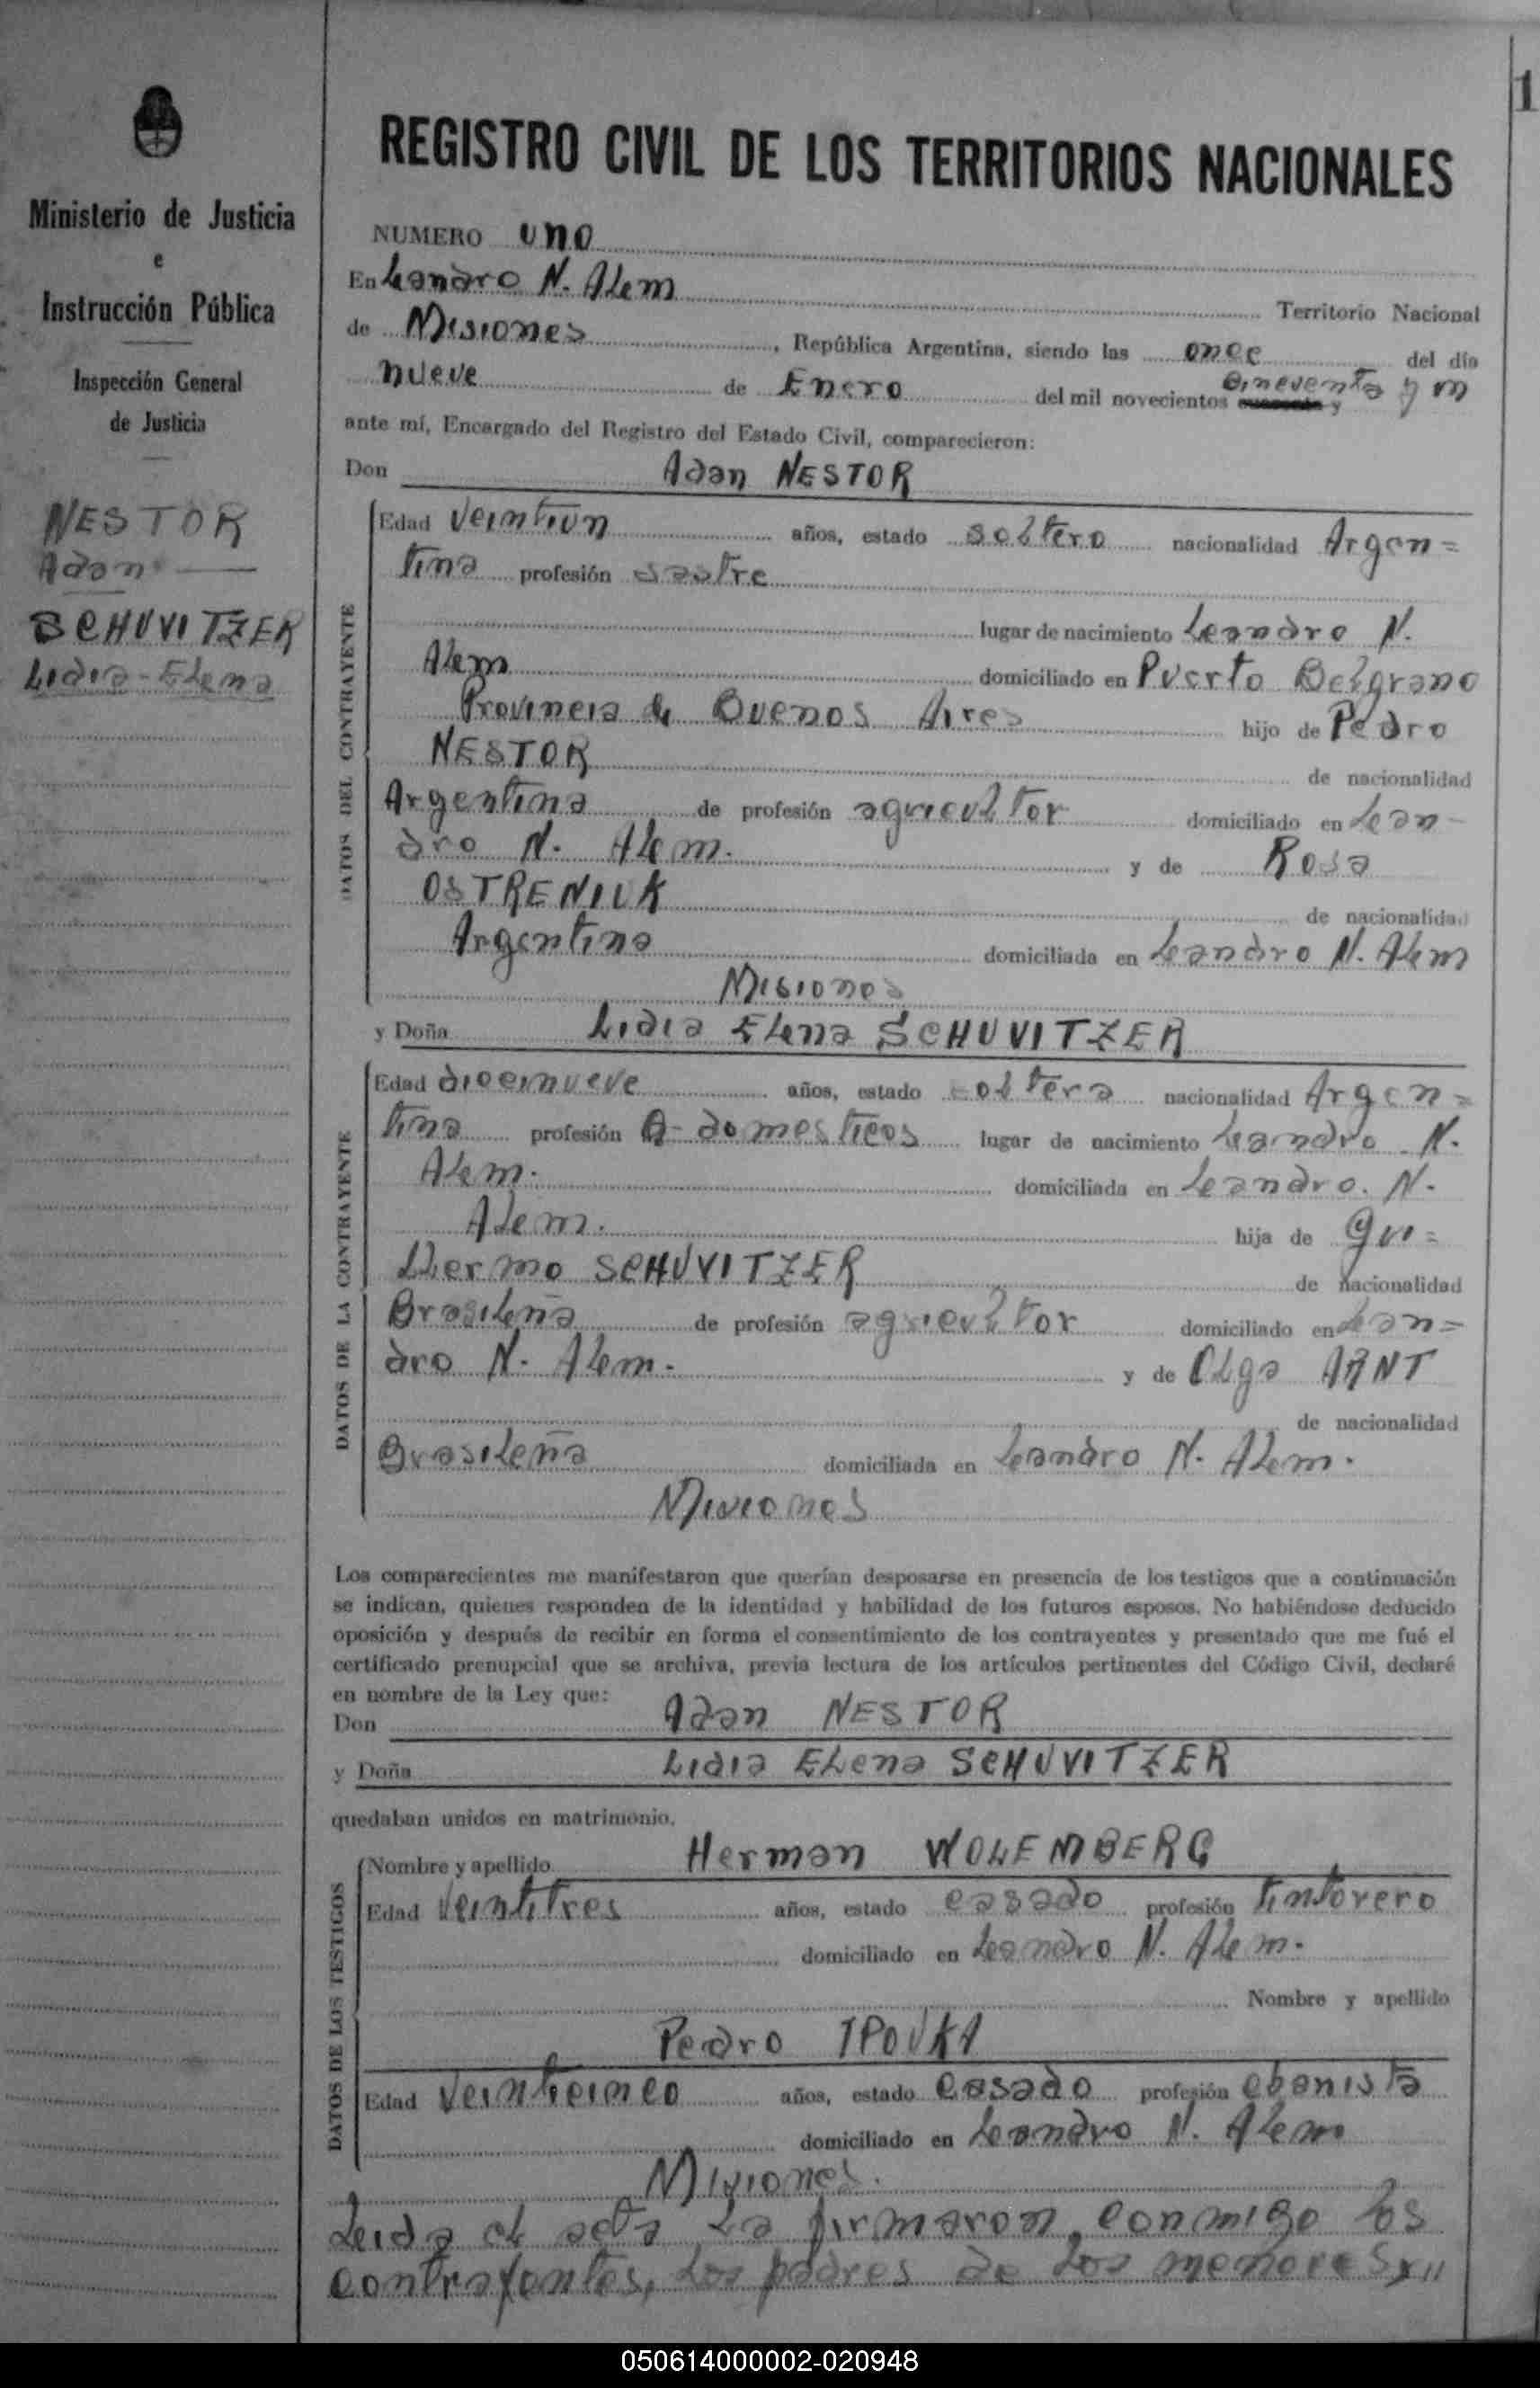 1
Ministerio de Justicia
e
Instrucción Pública
Inspección General
de Justicia
NESTOR
Adan
SCHUVITZER
Lidia-Elena
REGISTRO CIVIL DE LOS TERRITORIOS NACIONALES
NUMERO uno
En Leandro N. Alem Territorio Nacional
de Misiones, República Argentina, siendo las once del día
nueve de Enero del mil novecientos cincuenta y un
ante mí, Encargado del Registro del Estado Civil, comparecieron:
Don Adan NESTOR
DATOS DEL CONTRAYENTE
Edad veintiun años, estado soltero nacionalidad Argen=
tina profesión sastre
lugar de nacimiento Leandro N.
Alem domiciliado en Puerto Belgrano
Provincia de Buenos Aires hijo de Pedro
NESTOR de nacionalidad
Argentina de profesión agricultor domiciliado en Lean-
dro N. Alem. y de Rosa
OSTRENIUK de nacionalidad
Argentina domiciliada en Leandro N. Alem
Misiones
y Doña Lidia Elena SCHUVITZER
DATOS DE LA CONTRAYENTE
Edad diecinueve años, estado soltera nacionalidad Argen=
tina profesión Q-domesticos lugar de nacimiento Leandro N.
Alem. domiciliada en Leandro. N.
Alem. hija de Gui=
llermo SCHUVITZER de nacionalidad
Brasileña de profesión agricultor domiciliado en Lean=
dro N. Alem. y de Olga ARNT
de nacionalidad
Brasileña domiciliada en Leandro N. Alem.
Misiones
Los comparecientes me manifestaron que querían desposarse en presencia de los testigos que a continuación
se indican, quienes responden de la identidad y habilidad de los futuros esposos. No habiéndose deducido
oposición y después de recibir en forma el consentimiento de los contrayentes y presentado que me fué el
certificado prenupcial que se archiva, previa lectura de los artículos pertinentes del Código Civil, declaré
en nombre de la Ley que:
Don Adan NESTOR
y Doña Lidia Elena SCHUVITZER
quedaban unidos en matrimonio.
DATOS DE LOS TESTIGOS
Nombre y apellido Herman WOLEMBERG
Edad veintitres años, estado casado profesión tintorero
domiciliado en Leandro N. Alem.
Nombre y apellido
Pedro
Edad veinticinco años, estado casado profesión ebanista
domiciliado en Leandro N. Alem
Misiones.
Leida el acta la firmaron, conmigo los
contrayentes, los padres de los menores
050614000002-020948